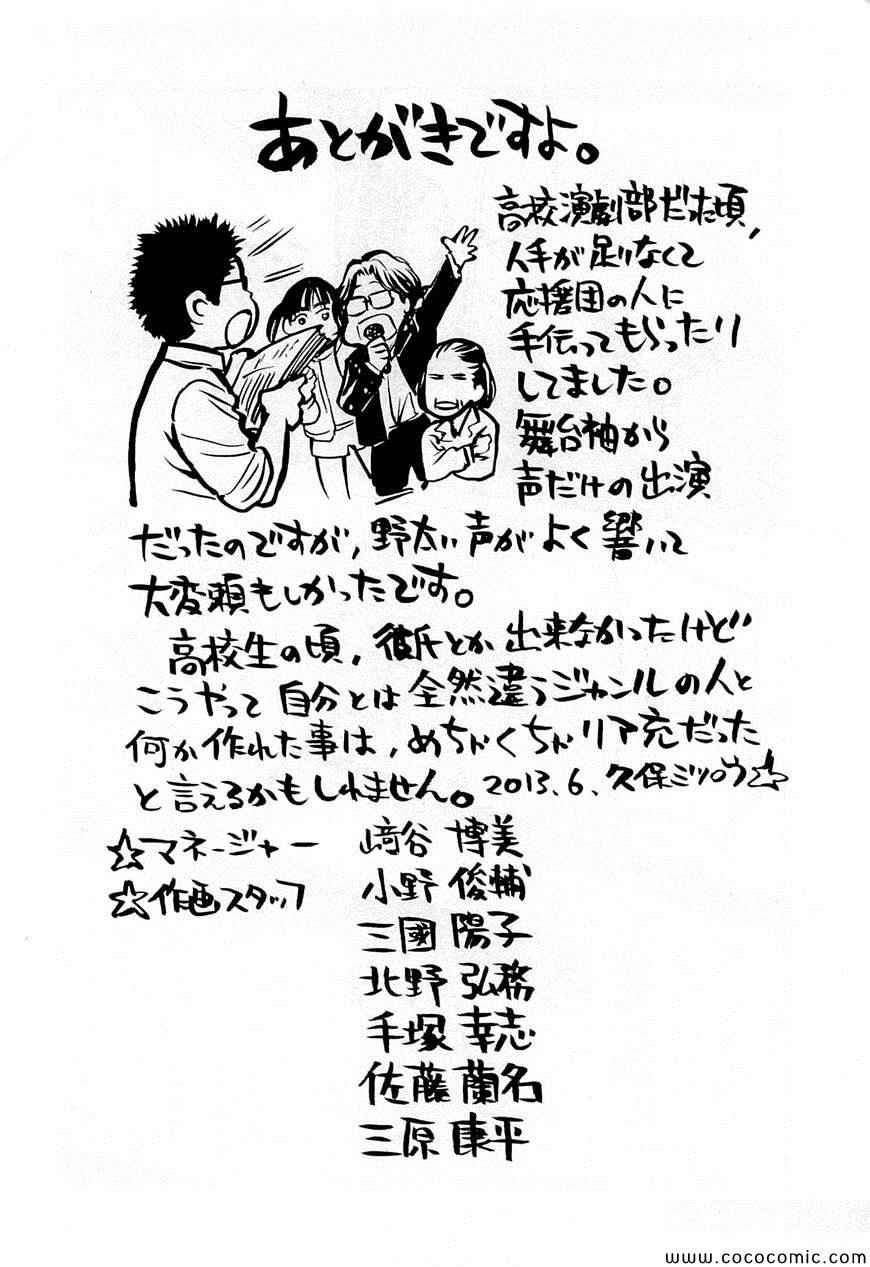 あとがきですよ。
高校演劇部だった頃,
人手が足りなくて
応援団の人に
手伝ってもらったり
してました。
舞台袖から
声だけの出演
だったのですが,野太い声がよく響いて
大変頼もしかったです。
高校生の頃,彼氏とか出来なかったけど
こうやって自分とは全然違うジャンルの人と
何か作れた事は,めちゃくちゃリア充だった
と言えるかもしれません。2013.6.久保ミツロウ☆
☆マネージャー 﨑谷 博美
☆作画スタッフ 小野 俊輔
三國 陽子
北野 弘務
手塚 幸志
佐藤 蘭名
三原 康平
www.cococomic.com